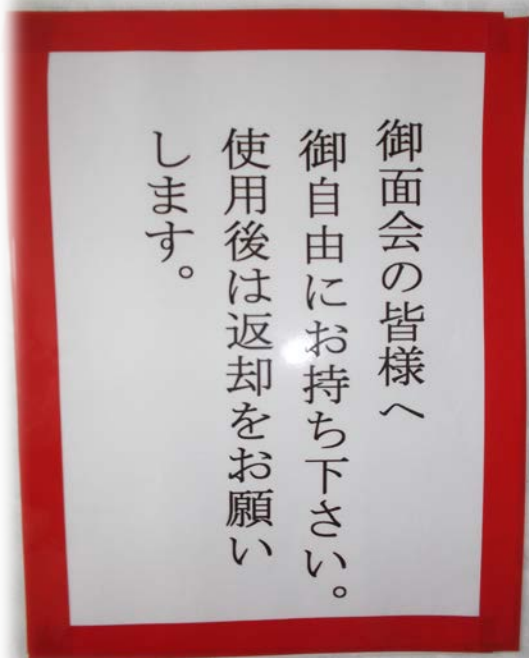 御面会の皆様へ
御自由にお持ち下さい。
使用後は返却をお願い
します。